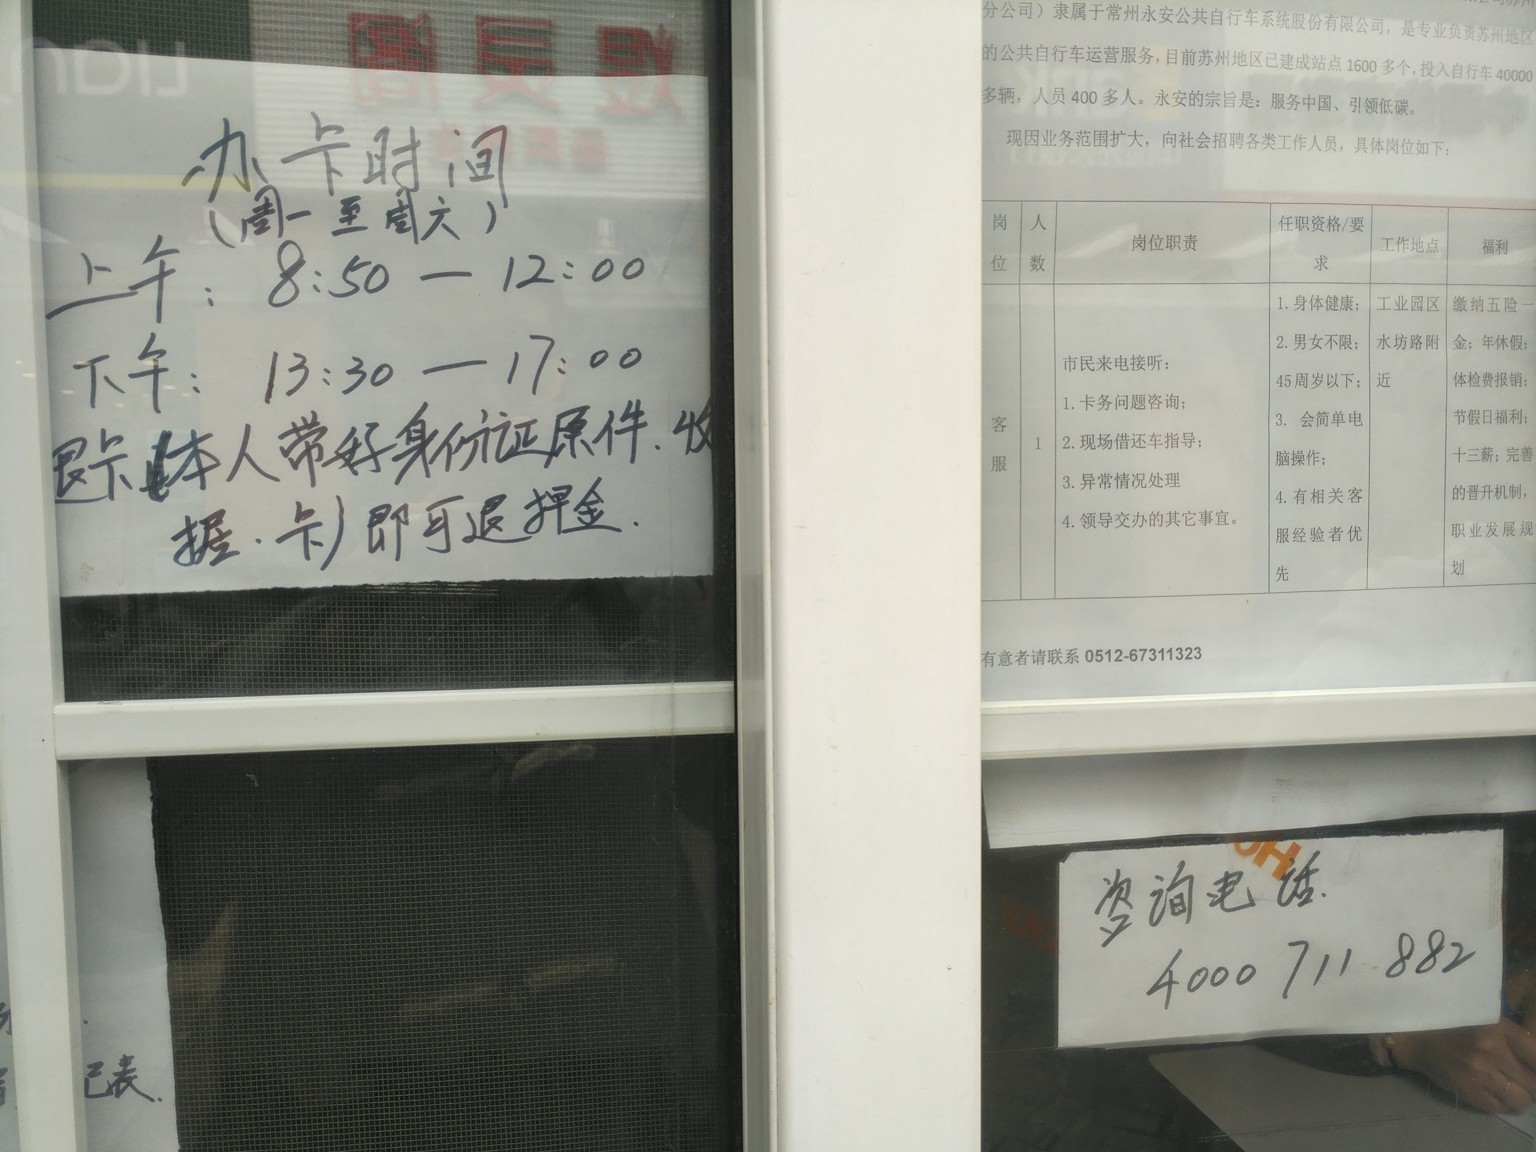 办卡时间
(周一至周六)
上午: 8:50 — 12:00
下午: 13:30 — 17:00
退卡(本人带好身份证原件.收
据.卡)即可退押金.
记表.
分公司）隶属于常州永安公共自行车系统股份有限公司，是专业负责苏州地区
的公共自行车运营服务，目前苏州地区已建成站点 1600 多个，投入自行车 40000
多辆，人员 400 多人。永安的宗旨是：服务中国、引领低碳。
现因业务范围扩大，向社会招聘各类工作人员，具体岗位如下：
岗位
人数
岗位职责
任职资格/要求
工作地点
福利
客服
1
市民来电接听：
1.卡务问题咨询；
2.现场借还车指导；
3.异常情况处理
4.领导交办的其它事宜。
1.身体健康；
2.男女不限；
45周岁以下；
3. 会简单电
脑操作；
4.有相关客
服经验者优
先
工业园区
水坊路附
近
缴纳五险一
金；年休假；
体检费报销；
节假日福利；
十三薪；完善
的晋升机制，
职业发展规
划
有意者请联系 0512-67311323
咨询电话.
4000 711 882